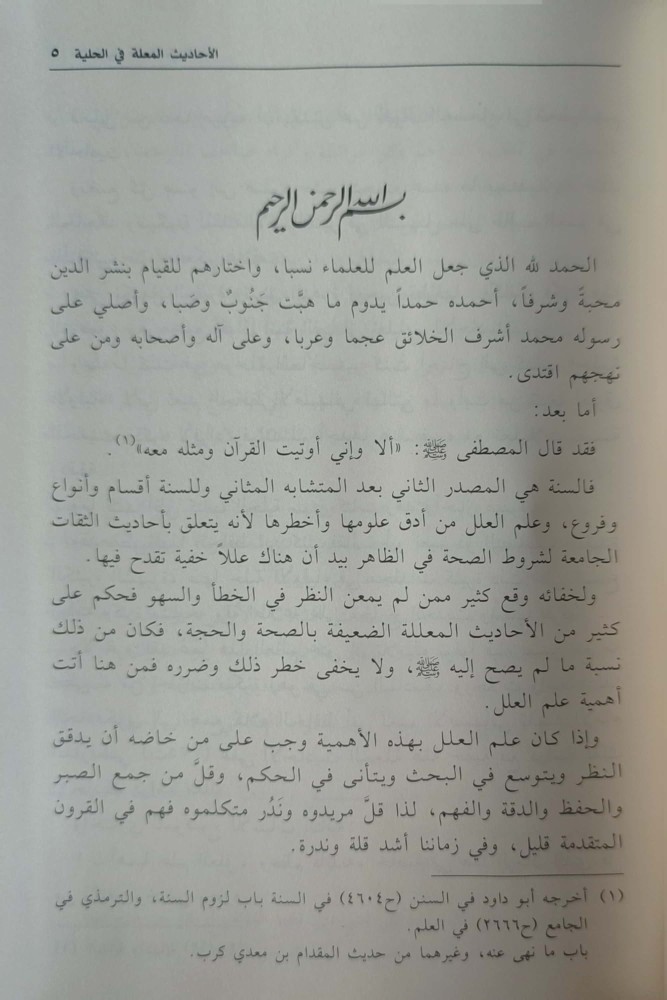 الأحاديث المعلة في الحلية ٥
بسم الله الرحمن الرحيم
الحمد لله الذي جعل العلم للعلماء نسبا، واختارهم للقيام بنشر الدين
محبةً وشرفاً، أحمده حمداً يدوم ما هبَّت جَنُوبٌ وصَبا، وأصلي على
رسوله محمد أشرف الخلائق عجما وعربا، وعلى آله وأصحابه ومن على
نهجهم اقتدى.
أما بعد:
فقد قال المصطفى ﷺ: «ألا وإني أوتيت القرآن ومثله معه»(١).
فالسنة هي المصدر الثاني بعد المتشابه المثاني وللسنة أقسام وأنواع
وفروع، وعلم العلل من أدق علومها وأخطرها لأنه يتعلق بأحاديث الثقات
الجامعة لشروط الصحة في الظاهر بيد أن هناك عللاً خفية تقدح فيها.
ولخفائه وقع كثير ممن لم يمعن النظر في الخطأ والسهو فحكم على
كثير من الأحاديث المعللة الضعيفة بالصحة والحجة، فكان من ذلك
نسبة ما لم يصح إليه ﷺ، ولا يخفى خطر ذلك وضرره فمن هنا أتت
أهمية علم العلل.
وإذا كان علم العلل بهذه الأهمية وجب على من خاضه أن يدقق
النظر ويتوسع في البحث ويتأنى في الحكم، وقلَّ من جمع الصبر
والحفظ والدقة والفهم، لذا قلَّ مريدوه ونَدُر متكلموه فهم في القرون
المتقدمة قليل، وفي زماننا أشد قلة وندرة.
(١) أخرجه أبو داود في السنن (ح٤٦٠٤) في السنة باب لزوم السنة، والترمذي في
الجامع (ح٢٦٦٦) في العلم.
باب ما نهى عنه، وغيرهما من حديث المقدام بن معدي كرب.